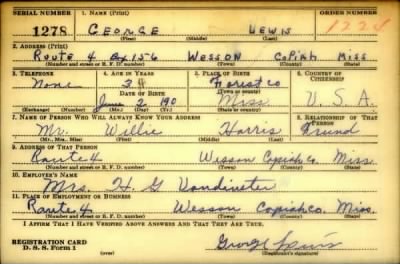 SERIAL NUMBER 1. NAME (Print) ORDER NUMBER
1278 GEORGE LEWIS 1224
(First) (Middle) (Last)
2. ADDRESS (Print)
ROUTE 4 BOX 156 WESSON COPIAH MISS
(Number and street or R. F. D. number) (Town) (County) (State)
3. TELEPHONE 4. AGE IN YEARS 5. PLACE OF BIRTH 6. COUNTRY OF CITIZENSHIP
None Forest Co
DATE OF BIRTH (Town or county)
June 2 190 Miss U.S.A.
(Exchange) (Number) (Mo.) (Day) (Yr.) (State or country)
7. NAME OF PERSON WHO WILL ALWAYS KNOW YOUR ADDRESS 8. RELATIONSHIP OF THAT PERSON
Mr. Willie Harris Friend
(Mr., Mrs., Miss) (First) (Middle) (Last)
9. ADDRESS OF THAT PERSON
Route 4 Wesson Copiah Co. Miss.
(Number and street or R. F. D. number) (Town) (County) (State)
10. EMPLOYER'S NAME
Mrs. H. G
11. PLACE OF EMPLOYMENT OR BUSINESS
Route 4 Wesson Copiah Co. Miss.
(Number and street or R. F. D. number) (Town) (County) (State)
I AFFIRM THAT I HAVE VERIFIED ABOVE ANSWERS AND THAT THEY ARE TRUE.
REGISTRATION CARD
D. S. S. Form 1 George Lewis
(Registrant's signature)